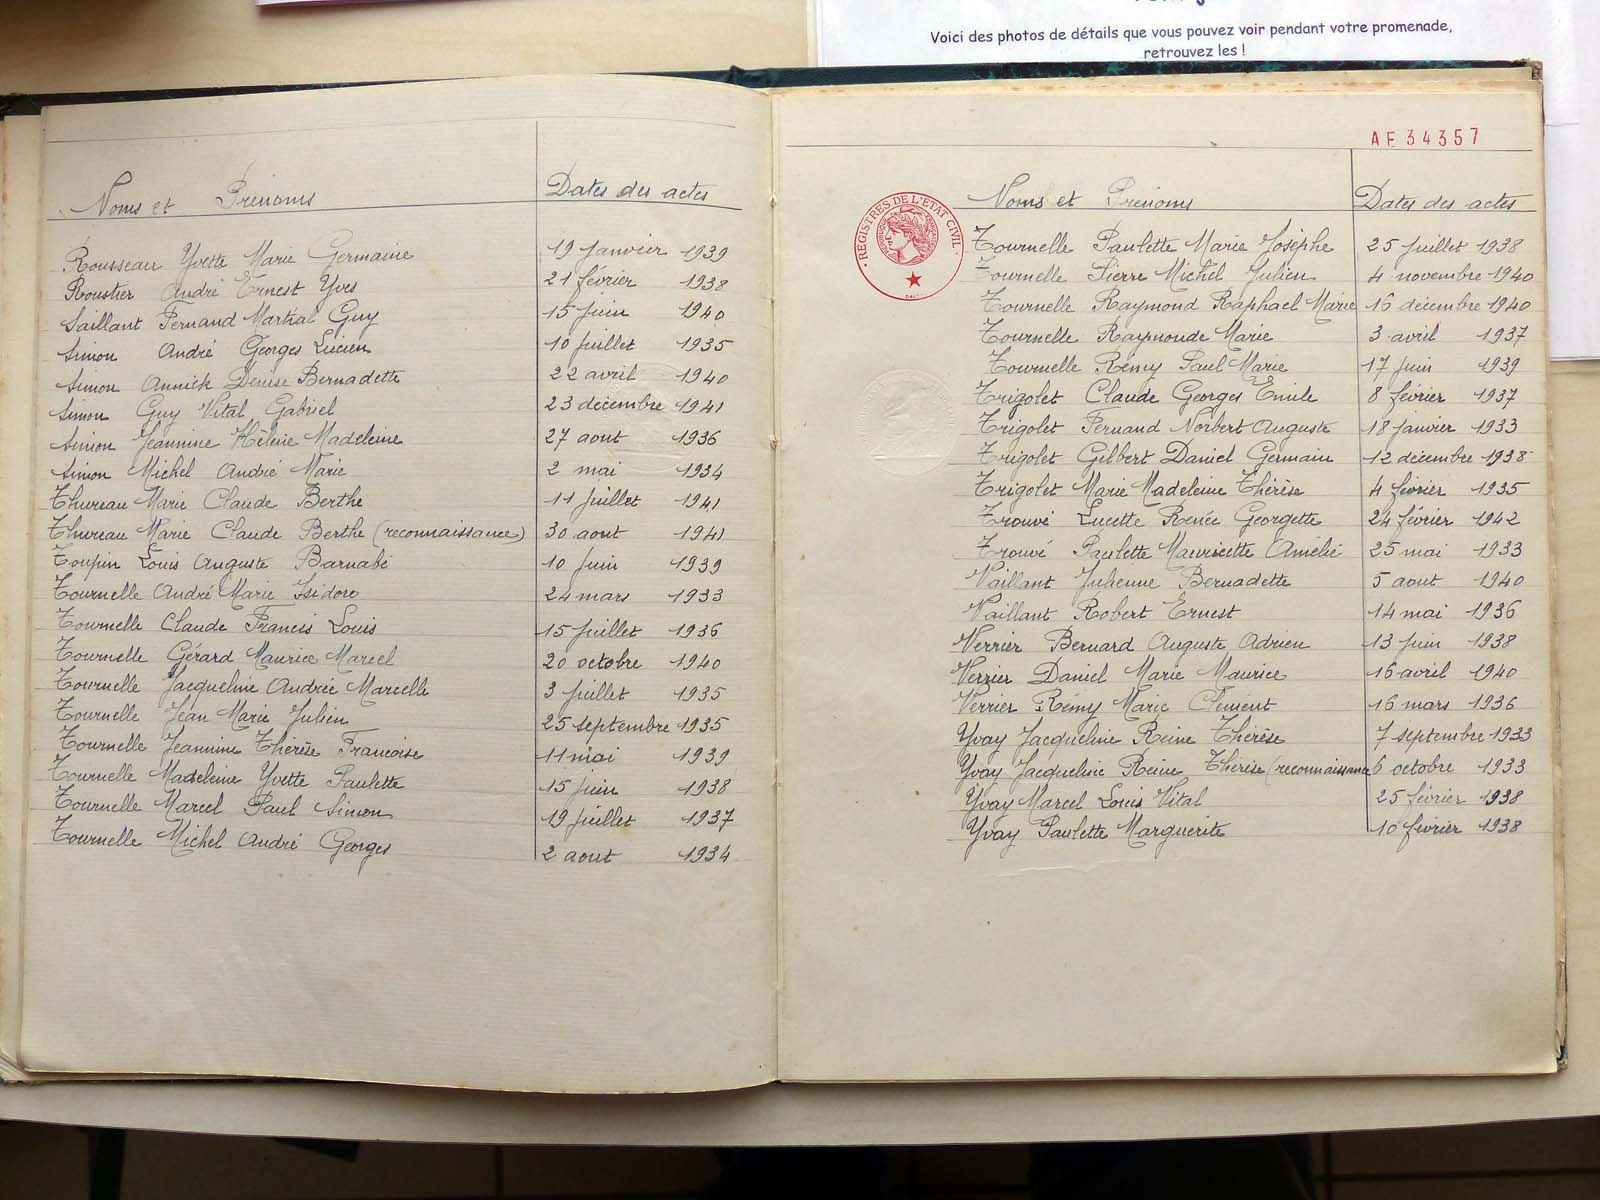 Voici des photos de détails que vous pouvez voir pendant votre promenade,
retrouvez les !
Noms et Prénoms Dates des actes
Rousseau Yvette Marie Germaine 19 Janvier 1939
Roustier André Ernest Yves 21 février 1938
Saillant Fernand Martial Guy 15 Juin 1940
Simon André Georges Lucien 10 Juillet 1935
Simon Annick Denise Bernadette 22 avril 1940
Simon Guy Vital Gabriel 23 décembre 1941
Simon Jeannine Hélène Madeleine 27 aout 1936
Simon Michel André Marie 2 mai 1934
Thureau Marie Claude Berthe 11 Juillet 1941
Thureau Marie Claude Berthe (reconnaissance) 30 aout 1941
Toupin Louis Auguste Barnabé 10 Juin 1939
Tournelle André Marie Isidore 24 mars 1933
Tournelle Claude Francis Louis 15 Juillet 1936
Tournelle Gérard Maurice Marcel 20 octobre 1940
Tournelle Jacqueline Andrée Marcelle 3 Juillet 1935
Tournelle Jean Marie Julien 25 septembre 1935
Tournelle Jeannine Thérèse Francoise 11 mai 1939
Tournelle Madeleine Yvette Paulette 15 Juin 1938
Tournelle Marcel Paul Simon 19 Juillet 1937
Tournelle Michel André Georges 2 aout 1934
AE 34357
REGISTRES DE L'ETAT CIVIL
Noms et Prénoms Dates des actes
Tournelle Paulette Marie Josèphe 25 Juillet 1938
Tournelle Pierre Michel Julien 4 novembre 1940
Tournelle Raymond Raphael Marie 16 décembre 1940
Tournelle Raymonde Marie 3 avril 1937
Tournelle Rémy Paul Marie 17 Juin 1939
Trigolet Claude Georges Emile 8 février 1937
Trigolet Fernand Norbert Auguste 18 Janvier 1933
Trigolet Gilbert Daniel Germain 12 décembre 1938
Trigolet Marie Madeleine Thérèse 4 février 1935
Trouvé Lucette Renée Georgette 24 février 1942
Trouvé Paulette Mauricette Amélie 25 mai 1933
Vaillant Julienne Bernadette 5 aout 1940
Vaillant Robert Ernest 14 mai 1936
Verrier Bernard Auguste Adrien 13 Juin 1938
Verrier Daniel Marie Maurice 16 avril 1940
Verrier Rémy Marie Clément 16 mars 1936
Yvay Jacqueline Reine Thérèse 7 septembre 1933
Yvay Jacqueline Reine Thérèse (reconnaissance 6 octobre 1933
Yvay Marcel Louis Vital 25 février 1938
Yvay Paulette Marguerite 10 février 1938